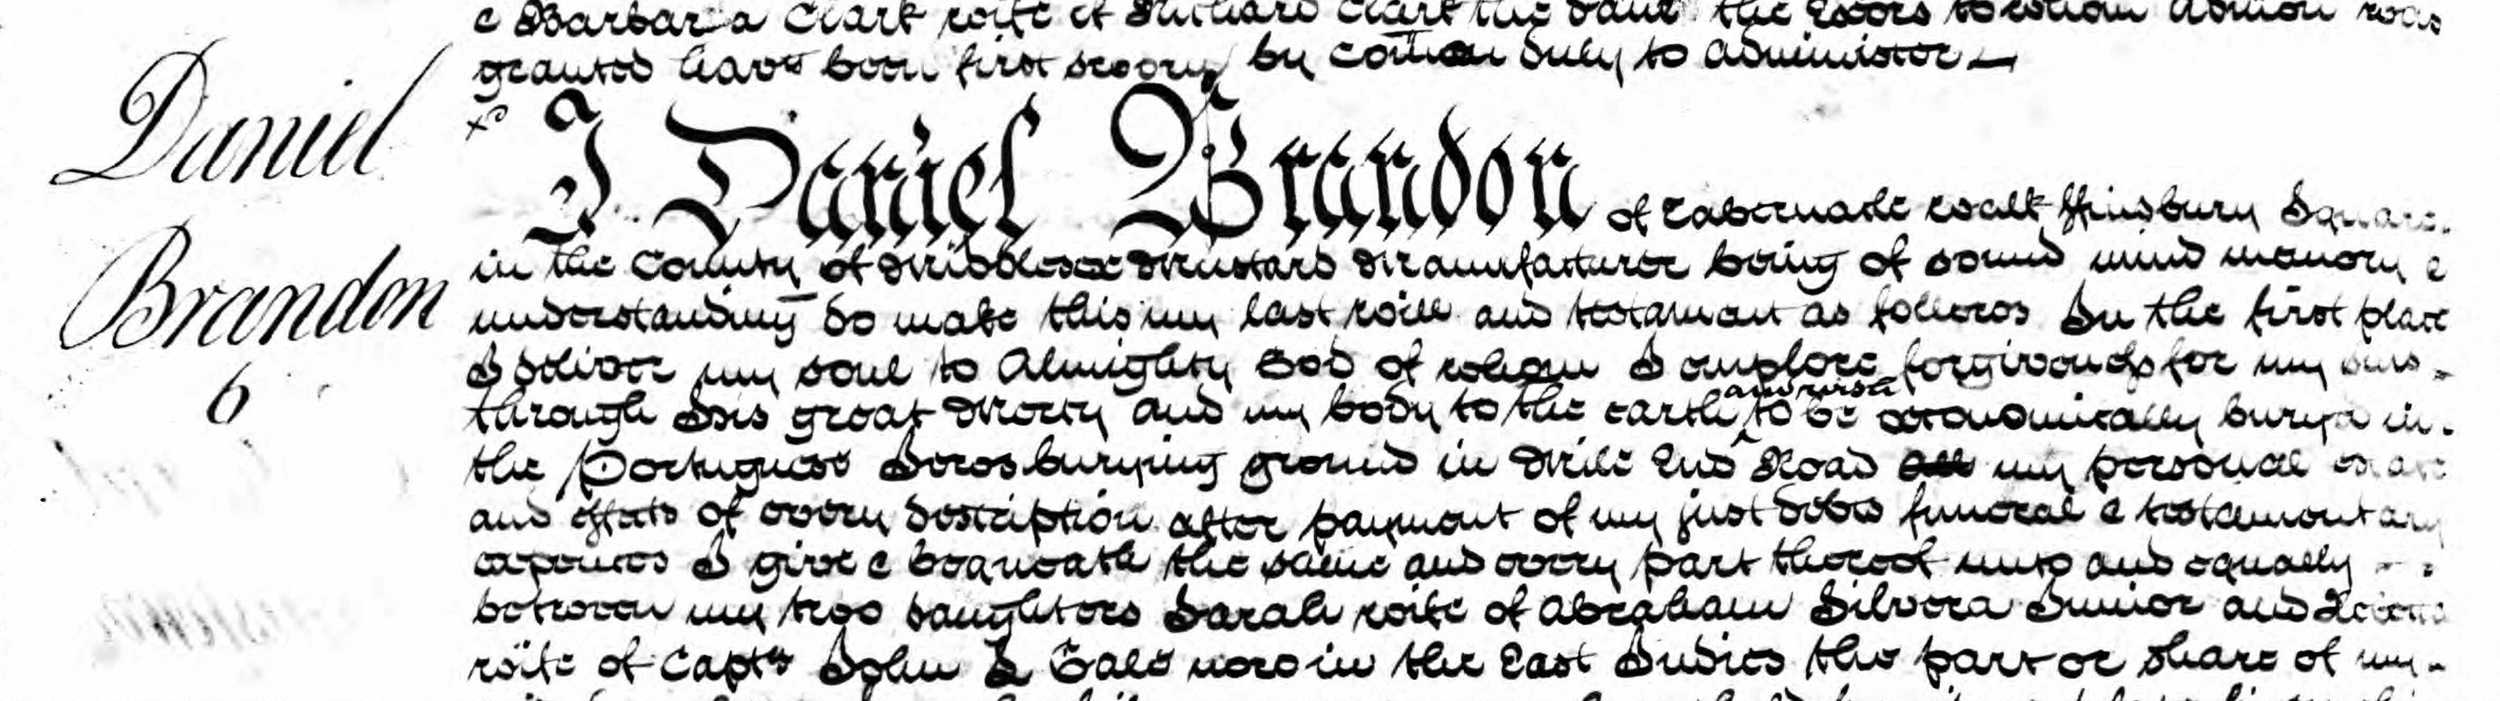 & Barbara Clark wife of Richard Clark the Exors to whom Admon was
granted have been first sworn by Comon duly to administer
Daniel
Brandon
6
I Daniel Brandon of Tabernacle walk ffinsbury Square
in the County of Middlesex Mustard Manufacturer being of sound mind memory &
understanding do make this my last will and testament as follows In the first place
I deliver my soul to Almighty God of whom I implore forgiveness for my sins
through His great Mercy and my body to the earth and wish to be economically buryed in
the Portuguese Jews burying ground in Mile End Road All my personal estate
and effects of every description after payment of my just debts funeral & testamentary
expences I give & bequeath the same and every part thereof unto and equally
between my two daughters Sarah wife of Abraham Silvera Junior and
wife of Captn John L Gale now in the East Indies the part or share of my